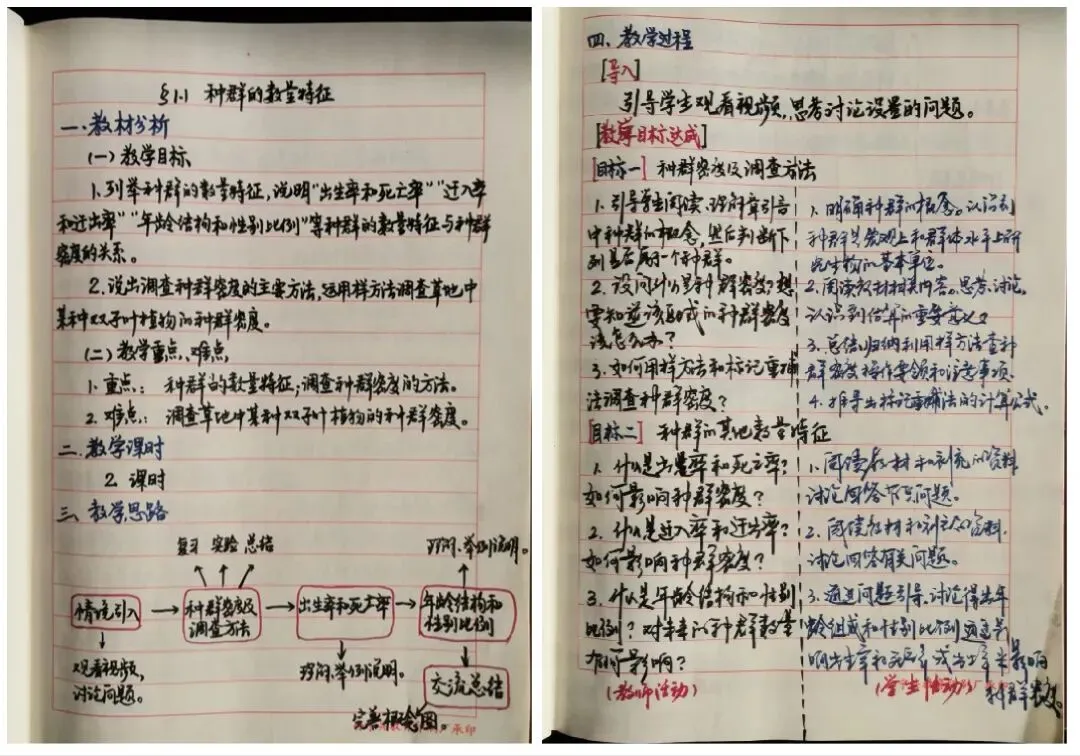 §1.1 种群的数量特征
一.教材分析
(一)教学目标
1.列举种群的数量特征,说明"出生率和死亡率""迁入率
和迁出率""年龄结构和性别比例"等种群的数量特征与种群
密度的关系。
2.说出调查种群密度的主要方法,运用样方法调查草地中
某种双子叶植物的种群密度。
(二)教学重点、难点
1.重点: 种群的数量特征;调查种群密度的方法。
2.难点: 调查草地中某种双子叶植物的种群密度。
二.教学课时
2课时
三.教学思路
复习 实验 总结
设问、举例说明。
情境引入
种群密度及
调查方法
出生率和死亡率
年龄结构和
性别比例
观看视频,
讨论问题。
设问、举例说明。
交流总结
完善概念图。
承印
四、教学过程
[导入]
引导学生观看视频,思考讨论设置的问题。
[教学目标达成]
[目标一] 种群密度及调查方法
1.引导学生阅读、理解章引言
中种群的概念,然后判断下
列是否属于一个种群。
2.设问什么是种群密度?想
要知道该的种群密度
该怎么办?
3.如何用样方法和标记重捕
法调查种群密度?
1.明确种群的概念。认识到
种群是宏观上和群体水平上研
究生物的基本单位。
2.阅读教材相关内容。思考、讨论。
认识到估算的重要意义
3.总结归纳利用样方法查种
群密度操作要领和注意事项.
4.推导出标记重捕法的计算公式。
[目标二] 种群的其他数量特征
1.什么是出生率和死亡率?
如何影响种群密度?
2.什么是迁入率和迁出率?
如何影响种群密度?
3.什么是年龄结构和性别
比例?对未来的种群数量
有何影响?
(教师活动)
1.阅读教材和补充的资料
讨论回答下列问题。
2.阅读教材和补充的资料.
讨论回答有关问题。
3.通过问题引导、讨论得出年
龄组成和性别比例
出生率和死亡率或出生率来影响
种群密度。
(学生活动)